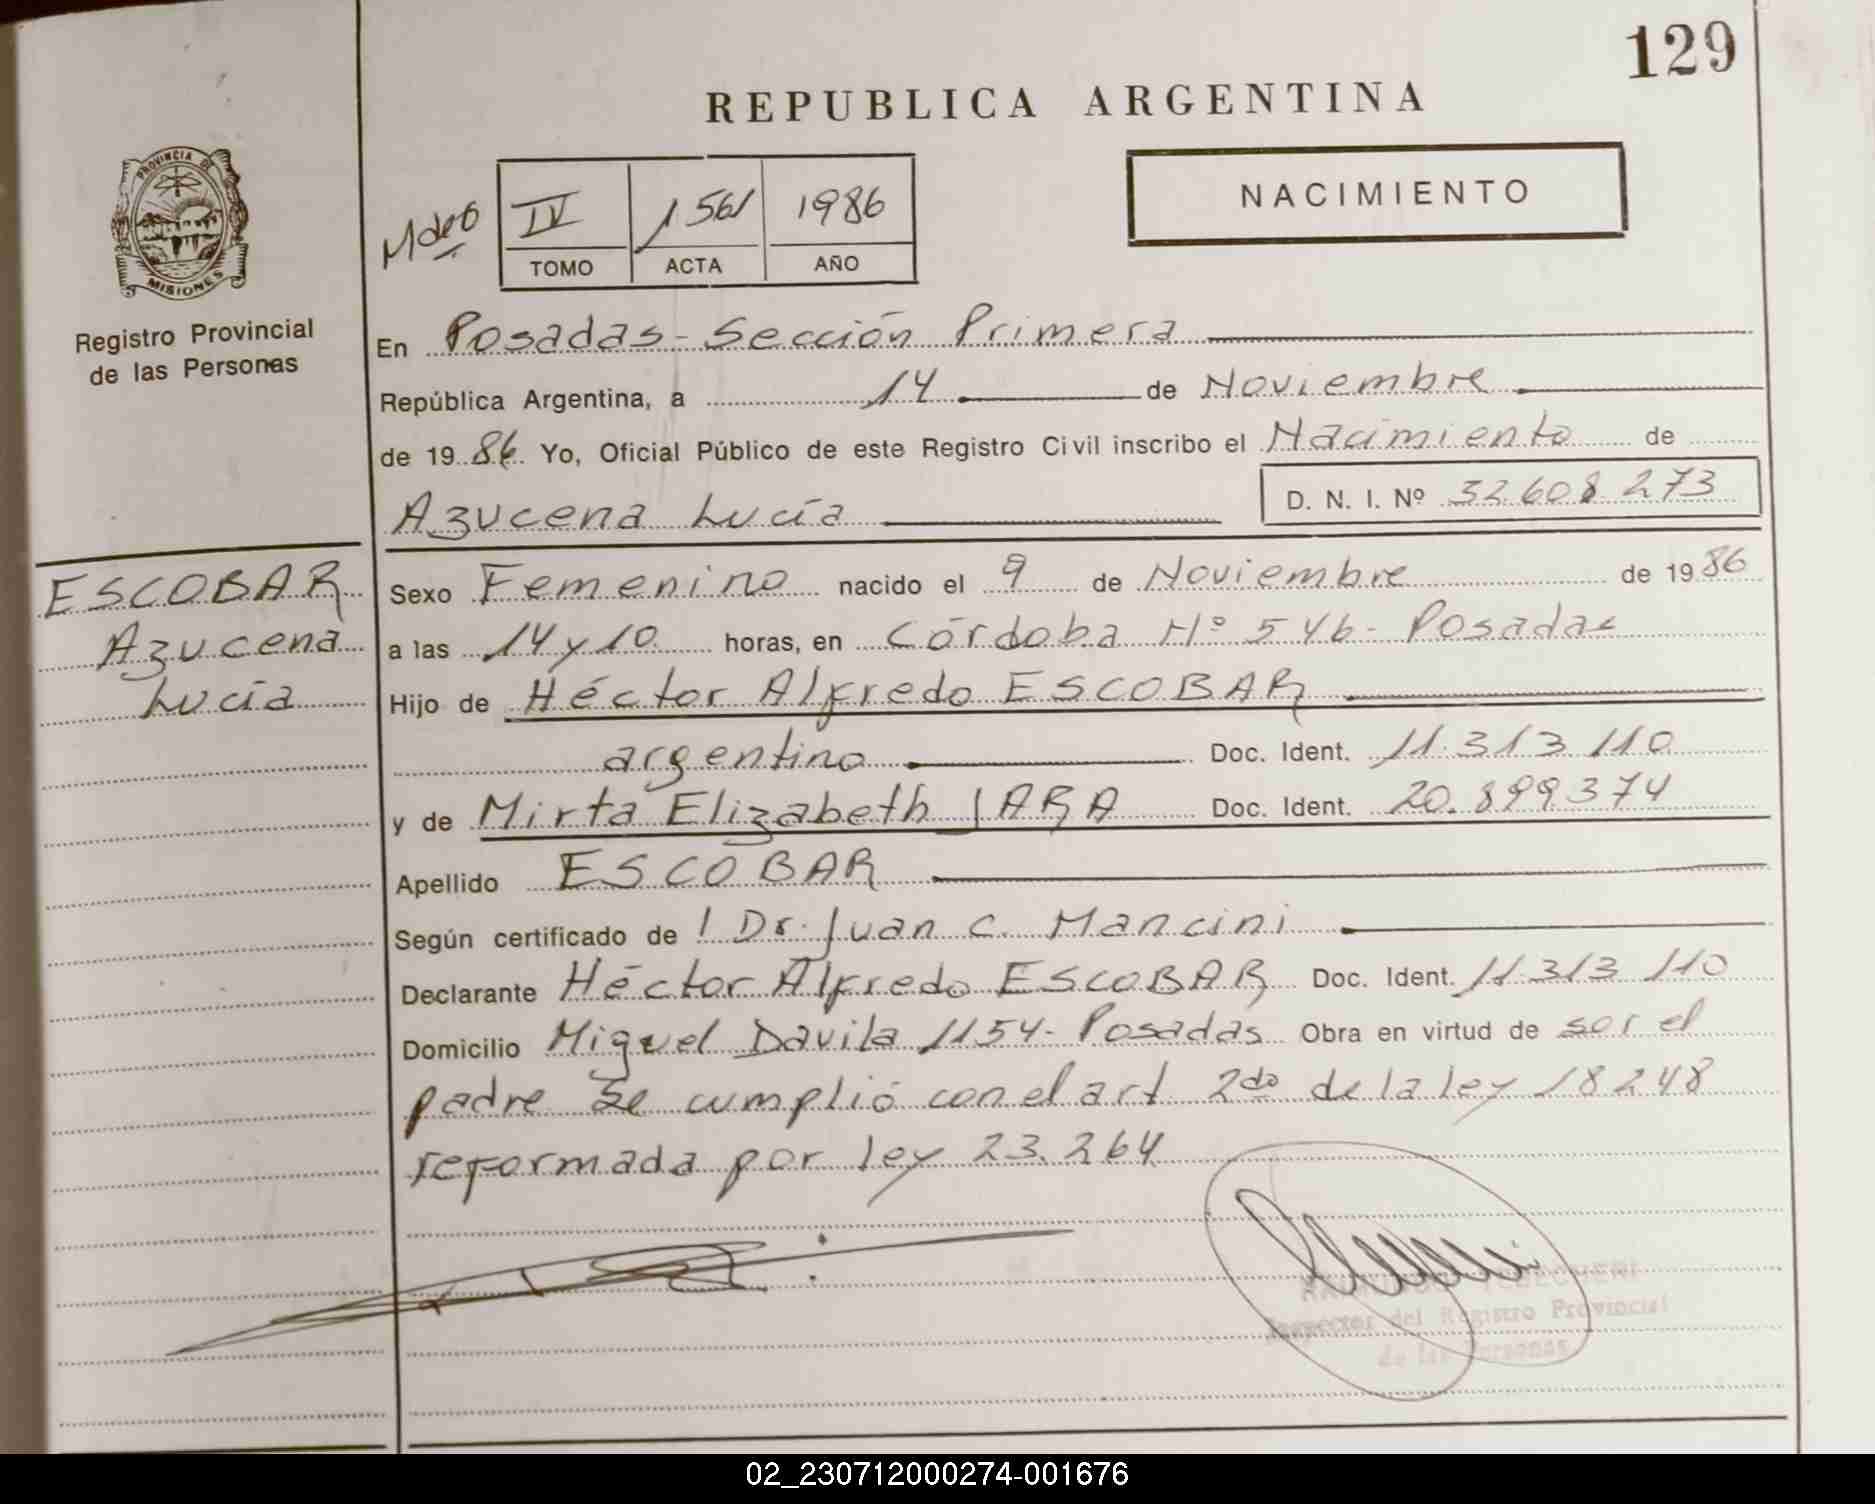 129
REPUBLICA ARGENTINA
PROVINCIA DE
MISIONES
Registro Provincial
de las Personas
IV 1561 1986
TOMO ACTA AÑO
NACIMIENTO
En Posadas - Sección Primera
República Argentina, a 14 de Noviembre
de 1986 Yo, Oficial Público de este Registro Civil inscribo el Nacimiento de
Azucena Lucía D. N. I. Nº 32.608.273
ESCOBAR
Azucena
Lucía
Sexo Femenino nacido el 9 de Noviembre de 1986
a las 14 y 10 horas, en Córdoba Nº 546 - Posadas
Hijo de Héctor Alfredo ESCOBAR
argentino Doc. Ident. 11.313.110
y de Mirta Elizabeth JARA Doc. Ident. 20.899.374
Apellido ESCOBAR
Según certificado de l Dr. Juan C. Mancini
Declarante Héctor Alfredo ESCOBAR Doc. Ident. 11.313.110
Domicilio Miguel Davila 1154 - Posadas Obra en virtud de ser el
padre Se cumplió con el art 2do de la ley 18248
reformada por ley 23.264
Inspector del Registro Provincial
de las Personas
02_230712000274-001676